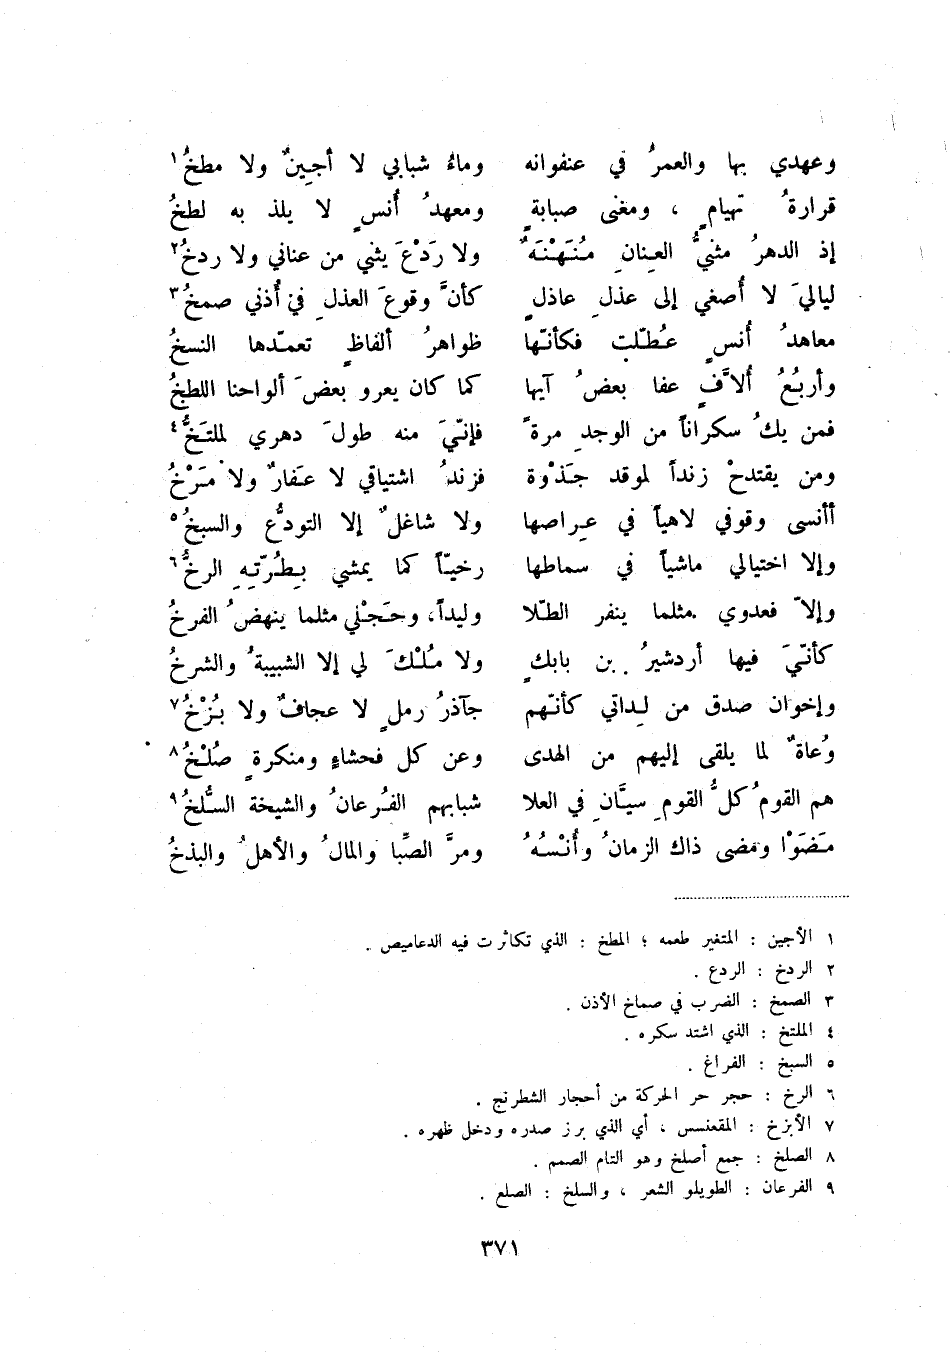 وعهدي بها والعمرُ في عنفوانه وماءُ شبابي لا أجِينٌ ولا مطخُ١
قرارةُ تهيامٍ ، ومغنى صبابةٍ ومعهدُ أُنسٍ لا يلذ به لطخُ
إذ الدهرُ مثنيُّ العِنانِ مُنَهْنَهٌ ولا رَدْعَ يثني من عناني ولا ردخُ٢
لياليَ لا أُصغي إلى عذلِ عاذلٍ كأنَّ وقوعَ العذلِ في أُذني صمخُ٣
معاهدُ أُنسٍ عُطّلت فكأنّها ظواهرُ ألفاظٍ تعمّدها النسخُ
وأربُعُ أُلاَّفٍ عفا بعضُ آيها كما كان يعرو بعضَ ألواحنا اللطخُ
فمن يكُ سكراناً من الوجدِ مرةً فإنّيَ منه طولَ دهري لملتَخُّ٤
ومن يقتدحْ زنداً لموقد جَذْوة فزندُ اشتياقي لا عَفارٌ ولا مَرْخُ
أأنسى وقوفي لاهياً في عِراصها ولا شاغلٌ إلا التودُّع والسبخُ٥
وإلا اختيالي ماشياً في سماطها رخيّاً كما يمشي بِطُرّتِهِ الرخُّ٦
وإلاّ فعدوي مثلما ينفر الطّلا وليداً، وحَجْلي مثلما ينهضُ الفرخُ
كأنّيَ فيها أردشيرُ بن بابكٍ ولا مُلْكَ لي إلا الشبيبةُ والشرخُ
وإخوان صدق من لِداتي كأنّهم جآذرُ رملٍ لا عجافٌ ولا بُزْخُ٧
وُعاةٌ لما يلقى إليهم من الهدى وعن كل فحشاءٍ ومنكرةٍ صُلْخُ٨
هم القومُ كلُّ القومِ سيَّانِ في العلا شبابهم الفُرعانُ والشيخة السُّلخُ٩
مَضَوْا ومضى ذاك الزمانُ وأُنْسُهُ ومرَّ الصِّبا والمالُ والأهلُ والبذخُ
١ الأجين : المتغير طعمه ؛ المطخ : الذي تكاثرت فيه الدعاميص .
٢ الردخ : الردع .
٣ الصمخ : الضرب في صماخ الأذن .
٤ الملتخ : الذي اشتد سكره .
٥ السبخ : الفراغ .
٦ الرخ : حجر حر الحركة من أحجار الشطرنج .
٧ الأبزخ : المقعنسس ، أي الذي برز صدره ودخل ظهره .
٨ الصلخ : جمع أصلخ وهو التام الصمم .
٩ الفرعان : الطويلو الشعر ، والسلخ : الصلع .
٣٧١